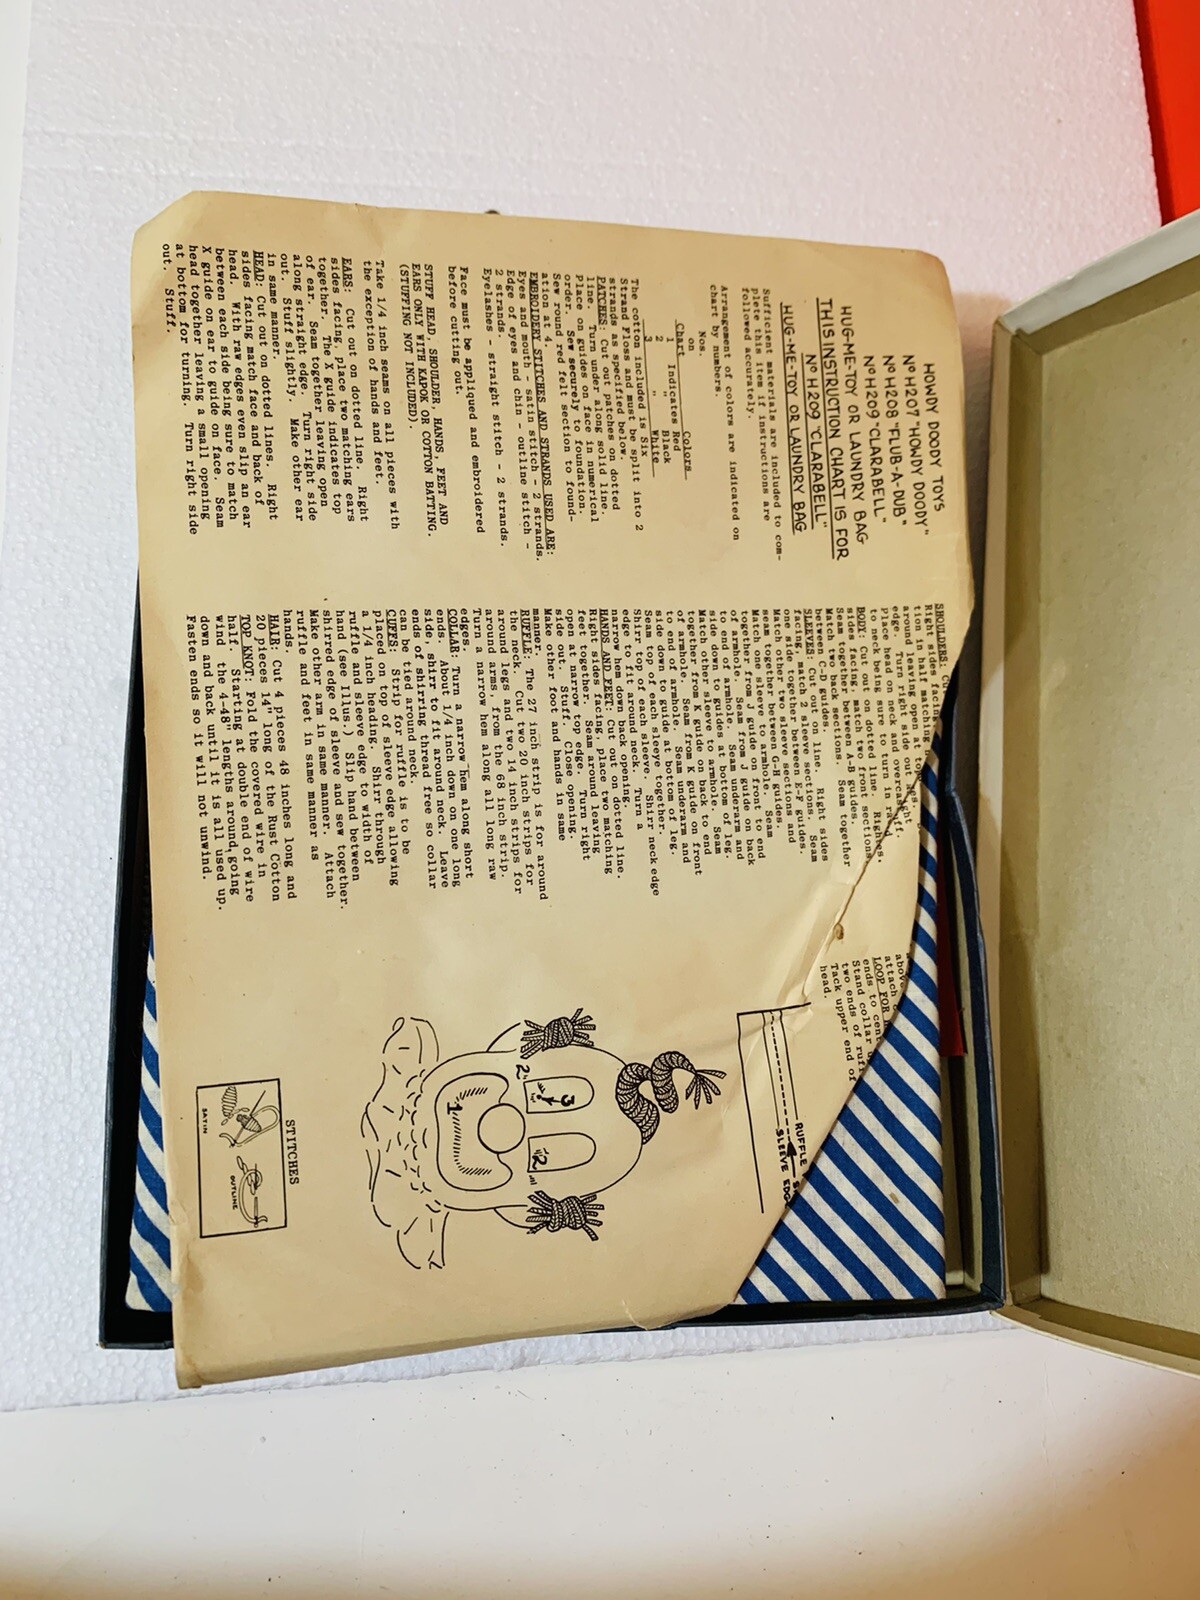 HOWDY DOODY TOYS
Nº H207 "HOWDY DOODY"
Nº H208 "FLUB-A-DUB"
Nº H209 "CLARABELL"
HUG-ME-TOY OR LAUNDRY BAG
THIS INSTRUCTION CHART IS FOR
Nº H209 "CLARABELL"
HUG-ME-TOY OR LAUNDRY BAG
Sufficient materials are included to com-
plete this item if instructions are
followed accurately.
Arrangement of colors are indicated on
chart by numbers.
Nos.
on
Chart Colors
1 Indicates Red
2 " Black
3 " White
The cotton included is Six
Strand Floss and must be split into 2
strands as specified below.
PATCHES: Cut out patches on dotted
line. Turn under along solid line.
Place on guides on face in numerical
order. Sew securely to foundation.
Sew round red felt section to found-
ation at 4.
EMBROIDERY STITCHES AND STRANDS USED ARE:
Eyes and mouth - satin stitch - 2 strands.
Edge of eyes and chin - outline stitch -
2 strands.
Eyelashes - straight stitch - 2 strands.
Face must be appliqued and embroidered
before cutting out.
STUFF HEAD, SHOULDER, HANDS, FEET AND
EARS ONLY WITH KAPOK OR COTTON BATTING.
(STUFFING NOT INCLUDED).
Take 1/4 inch seams on all pieces with
the exception of hands and feet.
EARS: Cut out on dotted line. Right
sides facing, place two matching ears
together. The X guide indicates top
of ear. Seam together leaving open
along straight edge. Turn right side
out. Stuff slightly. Make other ear
in same manner.
HEAD: Cut out on dotted lines. Right
sides facing match face and back of
head. With raw edges even slip an ear
between each side being sure to match
X guide on ear to guide on face. Seam
head together leaving a small opening
at bottom for turning. Turn right side
out. Stuff.
SHOULDERS: Cut
Right sides facing,
tion in half matching
around leaving open at top
edge. Turn right side out
Place head on neck and overcast
to neck being sure to turn in raw
BODY: Cut out on dotted line. Right
sides facing, match two front sections.
Seam together between A-B guides.
Match two back sections. Seam together
between C-D guides.
SLEEVES: Cut out on line. Right sides
facing, match 2 sleeve sections. Seam
one side together between E-F guides.
Match other two sleeve sections and
seam together between G-H guides.
Match one sleeve to armhole. Seam
together from J guide on front to end
of armhole. Seam from J guide on back
to end of armhole. Seam underarm and
side down to guides at bottom of leg.
Match other sleeve to armhole. Seam
together from K guide on back to end
of armhole. Seam from K guide on front
to end of armhole. Seam underarm and
side down to guide at bottom of leg.
Seam top of each sleeve together.
Shirr top of each sleeve. Shirr neck edge
edge to fit around neck. Turn a
narrow hem down back opening.
HANDS AND FEET: Cut out on dotted line.
Right sides facing, place two matching
feet together. Seam around leaving
open at narrow top edge. Turn right
side out. Stuff. Close opening.
Make other foot and hands in same
manner.
RUFFLE: The 27 inch strip is for around
the neck. Cut two 20 inch strips for
around legs and two 14 inch strips for
around arms, from the 68 inch strip.
Turn a narrow hem along all long raw
edges.
COLLAR: Turn a narrow hem along short
ends. About 1/4 inch down on one long
side, shirr to fit around neck. Leave
ends of shirring thread free so collar
can be tied around neck.
CUFFS: Strip for ruffle is to be
placed on top of sleeve edge allowing
a 1/4 inch heading. Shirr through
ruffle and sleeve edge to width of
hand (see Illus.) Slip hand between
shirred edge of sleeve and sew together.
Make other arm in same manner. Attach
ruffle and feet in same manner as
hands.
HAIR: Cut 4 pieces 48 inches long and
20 pieces 14" long of the Rust Cotton
TOP KNOT: Fold the covered wire in
half. Starting at double end of wire
wind the 4-48" lengths around, going
down and back until it is all used up.
Fasten ends so it will not unwind.
above
attach
LOOP FOR
ends to cent
Stand collar
two ends of ruf
Tack upper end of
head.
RUFFLE
SLEEVE EDG
2
3
2
1
STITCHES
SATIN
OUTLINE